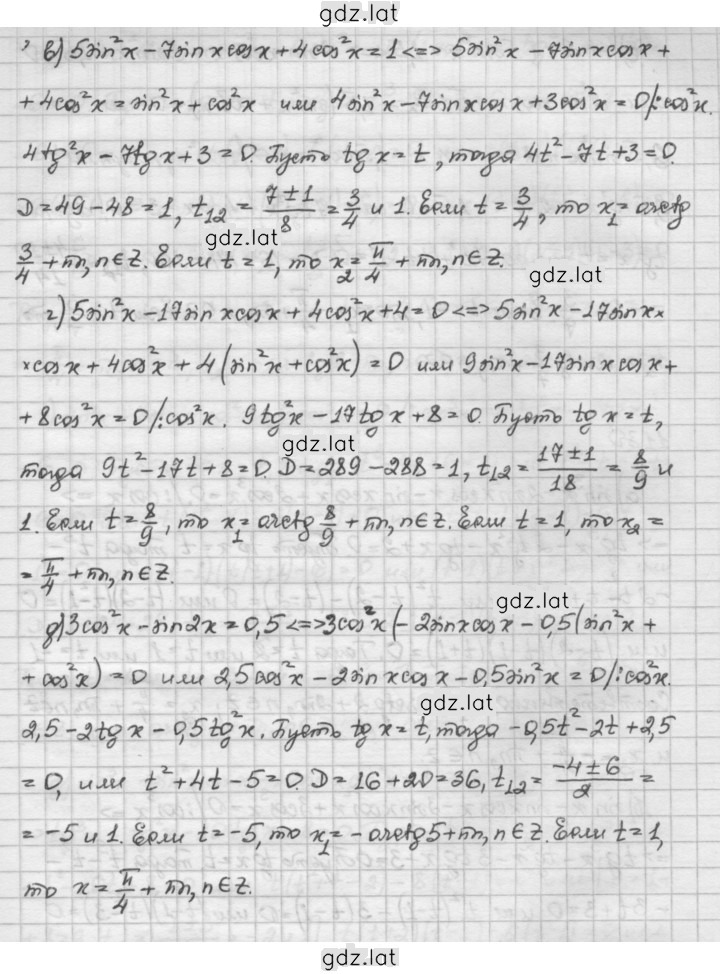 gdz.lat
в) 5sin²x - 7sinxcosx + 4cos²x = 1 <=> 5sin²x - 7sinxcosx +
+ 4cos²x = sin²x + cos²x или 4sin²x - 7sinxcosx + 3cos²x = 0/:cos²x.
4tg²x - 7tgx + 3 = 0. Пусть tgx = t, тогда 4t² - 7t + 3 = 0.
D = 49 - 48 = 1, t₁₂ = (7±1)/8 = 3/4 и 1. Если t = 3/4, то x₁ = arctg
gdz.lat
3/4 + πn, n∈Z. Если t = 1, то x₂ = π/4 + πn, n∈Z.
gdz.lat
г) 5sin²x - 17sinxcosx + 4cos²x + 4 = 0 <=> 5sin²x - 17sinx×
×cosx + 4cos²x + 4(sin²x + cos²x) = 0 или 9sin²x - 17sinxcosx +
+ 8cos²x = 0/:cos²x. 9tg²x - 17tgx + 8 = 0. Пусть tgx = t,
gdz.lat
тогда 9t² - 17t + 8 = 0. D = 289 - 288 = 1, t₁₂ = (17±1)/18 = 8/9 и
1. Если t = 8/9, то x₁ = arctg 8/9 + πn, n∈Z. Если t = 1, то x₂ =
= π/4 + πn, n∈Z.
gdz.lat
д) 3cos²x - sin2x = 0,5 <=> 3cos²x (- 2sinxcosx - 0,5(sin²x +
+ cos²x) = 0 или 2,5cos²x - 2sinxcosx - 0,5sin²x = 0/:cos²x.
gdz.lat
2,5 - 2tgx - 0,5tg²x. Пусть tgx = t, тогда -0,5t² - 2t + 2,5
= 0, или t² + 4t - 5 = 0. D = 16 + 20 = 36, t₁₂ = (-4±6)/2 =
= -5 и 1. Если t = -5, то x₁ = - arctg5 + πn, n∈Z. Если t = 1,
то x = π/4 + πn, n∈Z.
gdz.lat